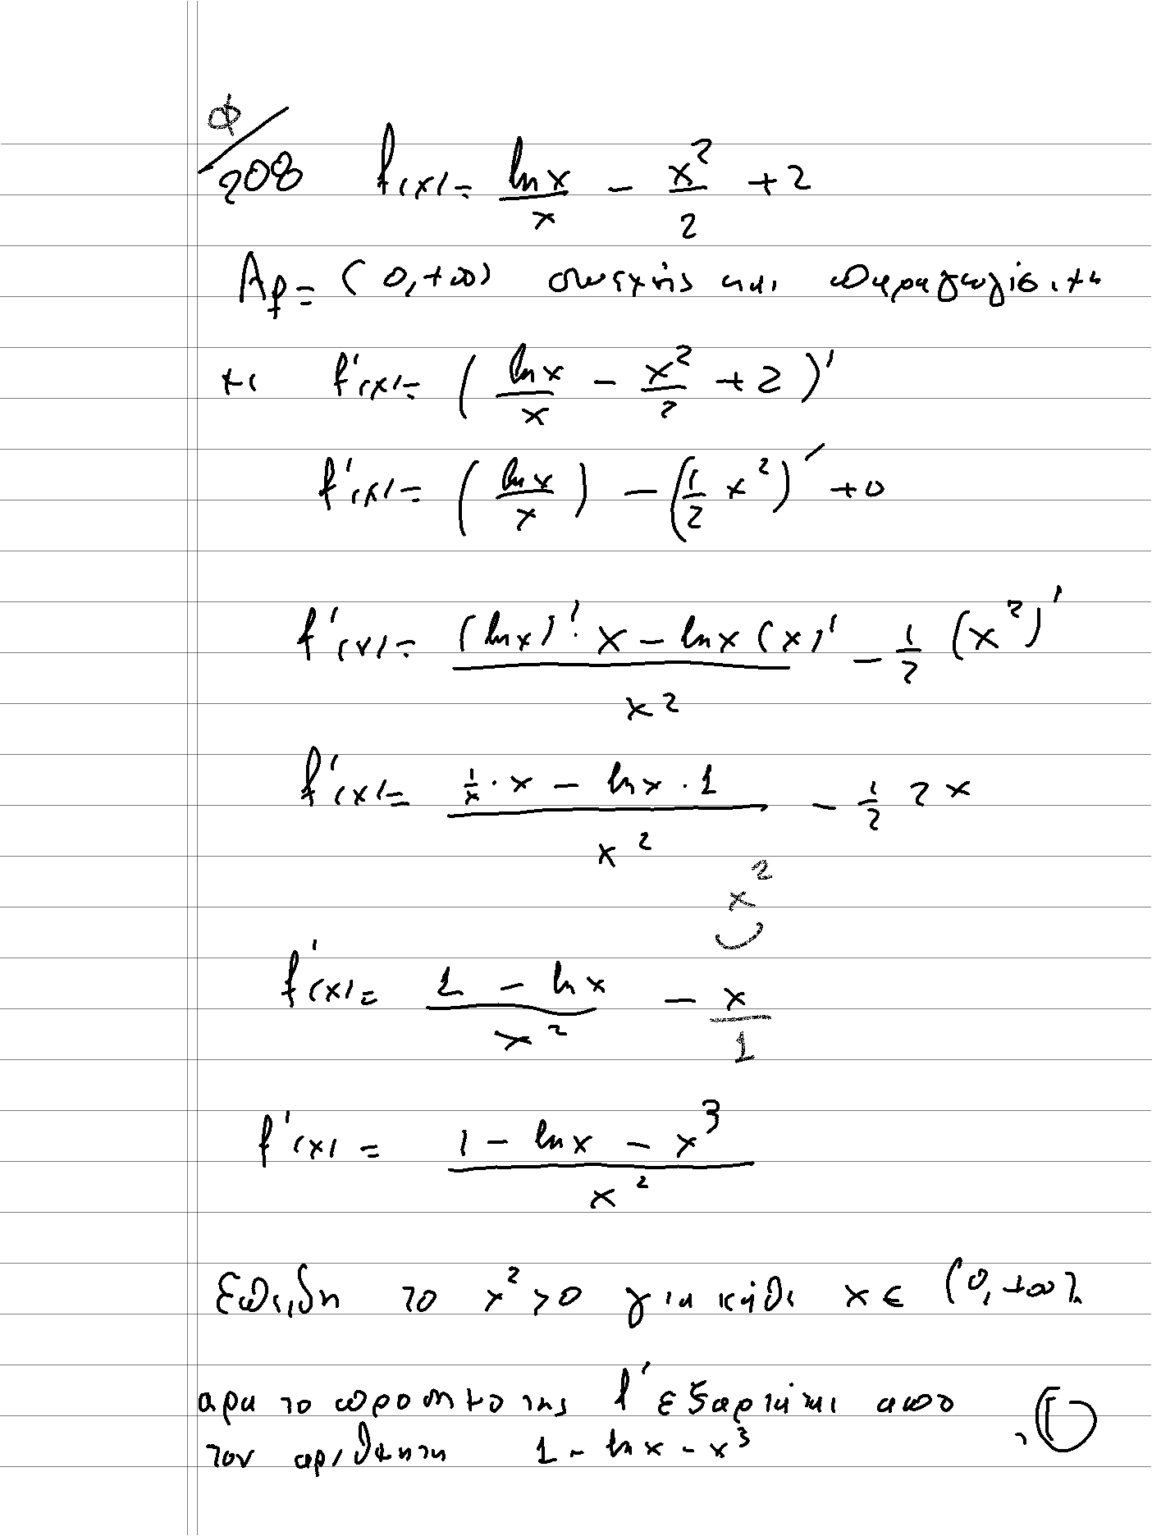 Φ/208 f(x) = lnx/x - x²/2 + 2
Af = (0,+∞) συνεχής και παραγωγίσιμη
με f'(x) = (lnx/x - x²/2 + 2)'
f'(x) = (lnx/x) - (1/2 x²)' + 0
f'(x) = ((lnx)'·x - lnx(x)')/x² - 1/2 (x²)'
f'(x) = (1/x·x - lnx·1)/x² - 1/2 2x
x²
f'(x) = (1 - lnx)/x² - x/1
f'(x) = (1 - lnx - x³)/x²
Επειδη το x² > 0 για κάθε x ∈ (0,+∞)
αρα το προσημο της f' εξαρτάται απο
τον αριθμητη 1 - lnx - x³